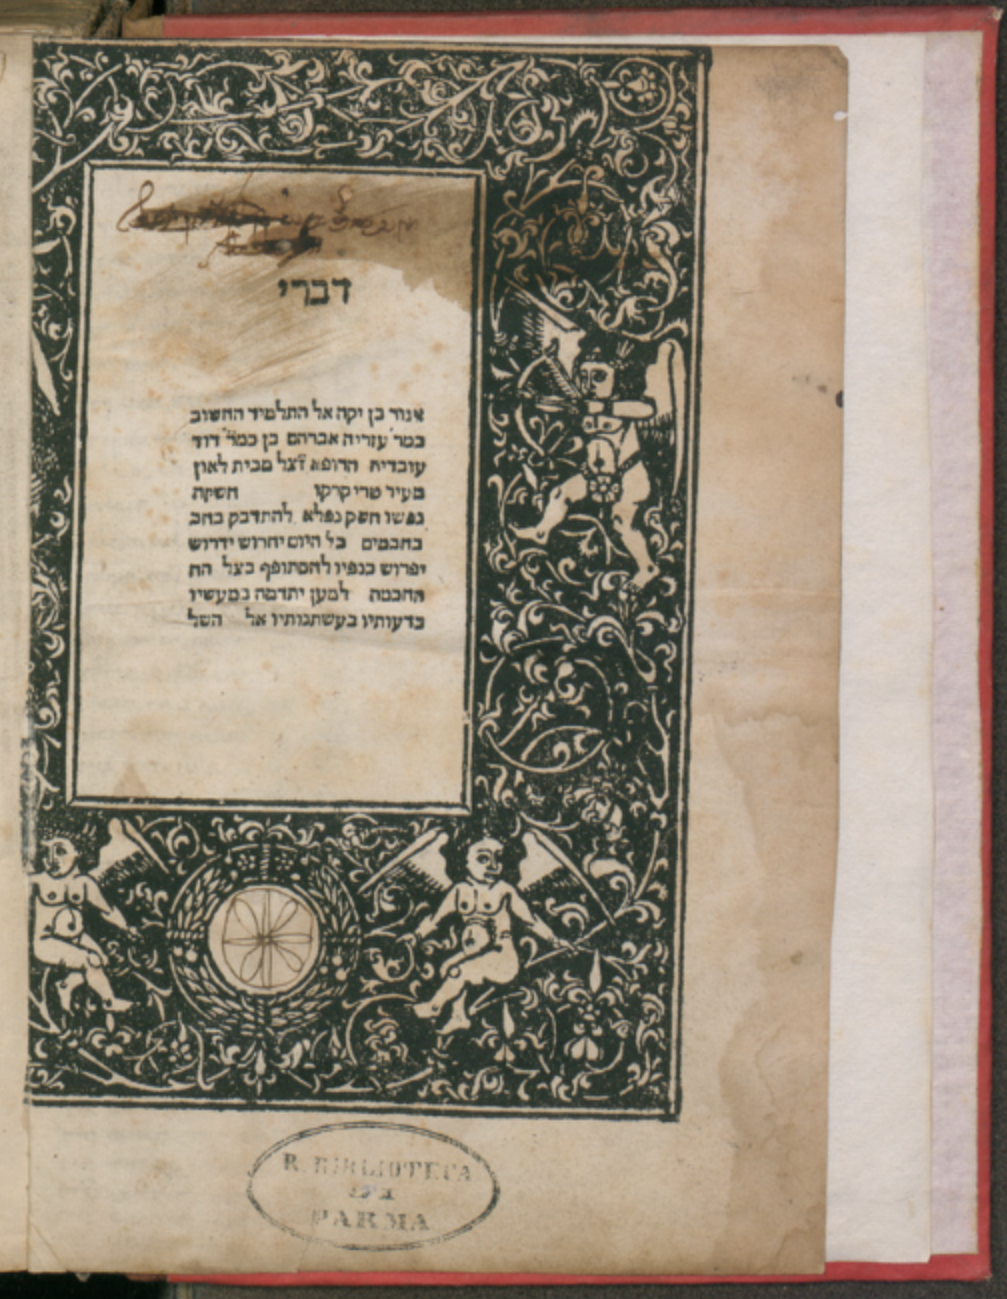 דברי
אגור בן יקה אל התלמיד החשוב
כמר עזריה אברהם בן כמר דוד
עובדיה הרופא זצל מבית לאון
מעיר טריקרקו חשקה
נפשו חשק נפלא להתדבק בחב
בחכמים כל היום יחרוש ידרוש
יפרוש כנפיו להסתופף בצל הח
החכמה למען יתדמה במעשיו
בדעותיו בעשתנותיו אל השל
R. BIBLIOTECA
DI
PARMA